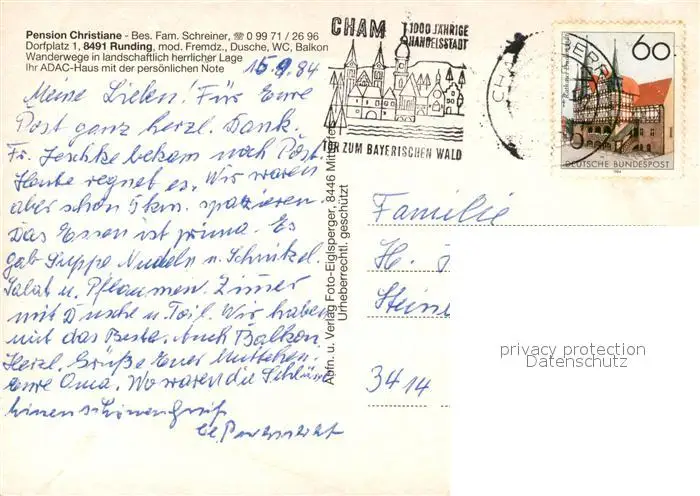 Pension Christiane - Bes. Fam. Schreiner, ☏ 0 99 71 / 26 96
Dorfplatz 1, 8491 Runding, mod. Fremdz., Dusche, WC, Balkon
Wanderwege in landschaftlich herrlicher Lage
Ihr ADAC-Haus mit der persönlichen Note
15.9.84
Meine Lieben! Für Eure
Post ganz herzl. Dank.
Fr. Jeschke bekam noch Post.
Heute regnet es. Wir waren
aber schon 5 km. spazieren.
Das Essen ist prima. Es
gab Suppe Nudeln u. Schnitzel.
Salat u. Pflaumen. Zimmer
mit Dusche u. Toil. Wir haben
mit das Beste. Auch Balkon
Herzl. Grüße Euer Muttchen.
Eure Oma. Wo waren die
einen schönen Gruß
CHAM 1000 JÄHRIGE
HANDELSSTADT
TOR ZUM BAYERISCHEN WALD
60
DEUTSCHE BUNDESPOST
1984
Aufn. u. Verlag Foto-Eiglsperger, 8446
Urheberrechtl. geschützt
Familie
H.
Steine
3414
privacy protection
Datenschutz